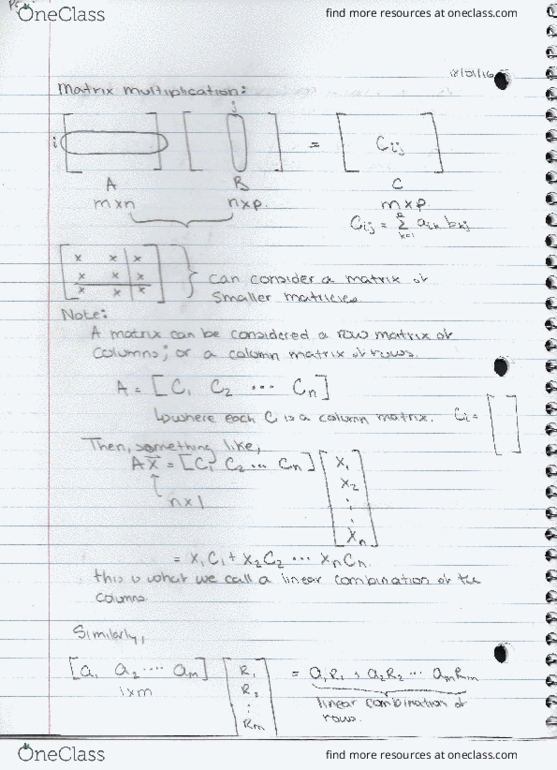 OneClass
find more resources at oneclass.com
18/01/16
Matrix multiplication:
j
i [ ] [ ] = [ Cij ]
A B C
m×n n×p. m×p.
Cij = Σ aik bkj
k=1
x x x
x x x
x x x
can consider a matrix of
smaller matricies
Note:
A matrix can be considered a row matrix of
columns; or a column matrix of rows.
A = [ C1 C2 ... Cn ]
↳ where each C is a column matrix. Ci = [ ]
Then, something like,
Ax = [C1 C2 ... Cn] [ x1
x2
⋮
xn ]
n×1
= x1C1 + x2C2 ... xnCn.
this is what we call a linear combination of the
columns
Similarly,
[a1 a2 .... am] [ R1
R2
⋮
Rm ] = a1R1 + a2R2 ... amRm
1×m
linear combination of
rows.
OneClass
find more resources at oneclass.com